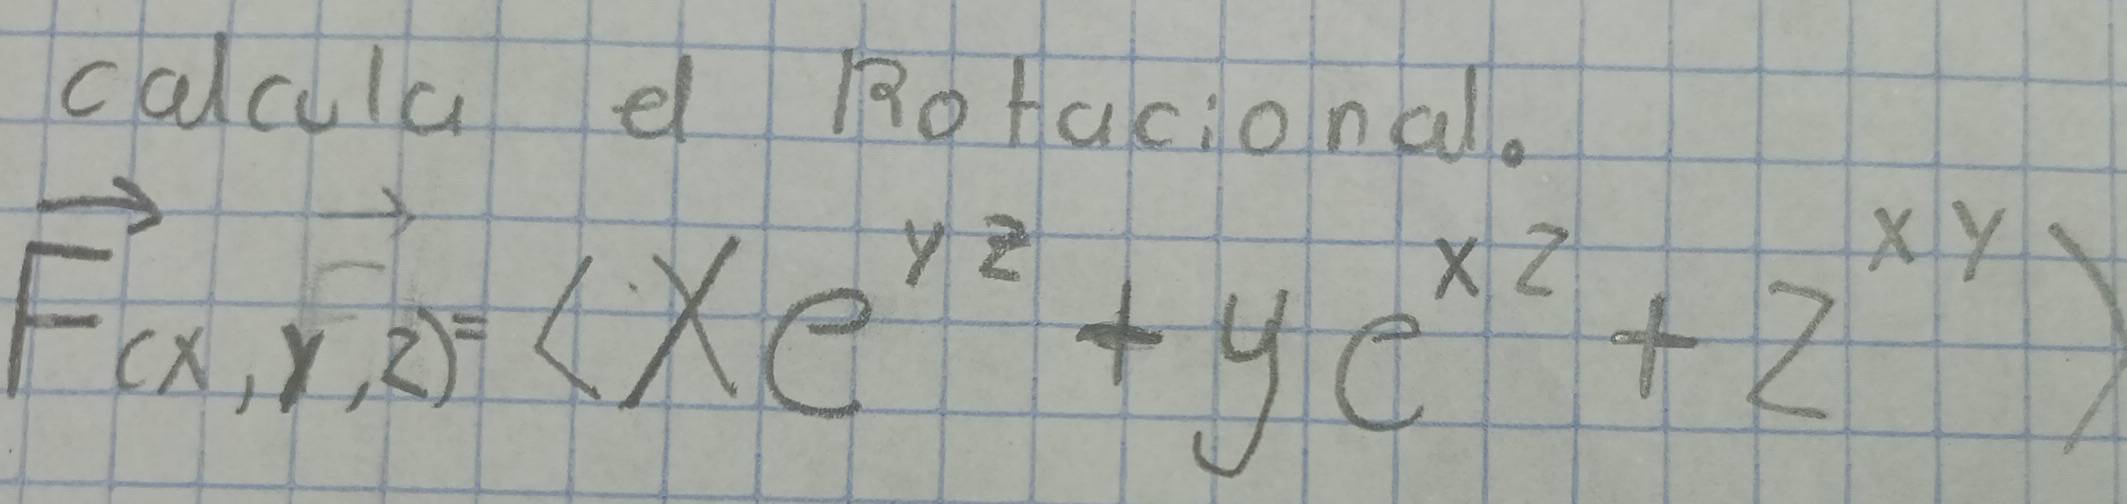 calcula el Rotacional.
F⃗(x,y,z)=⟨Xe^{yz}+ye^{xz}+z^{xy}⟩